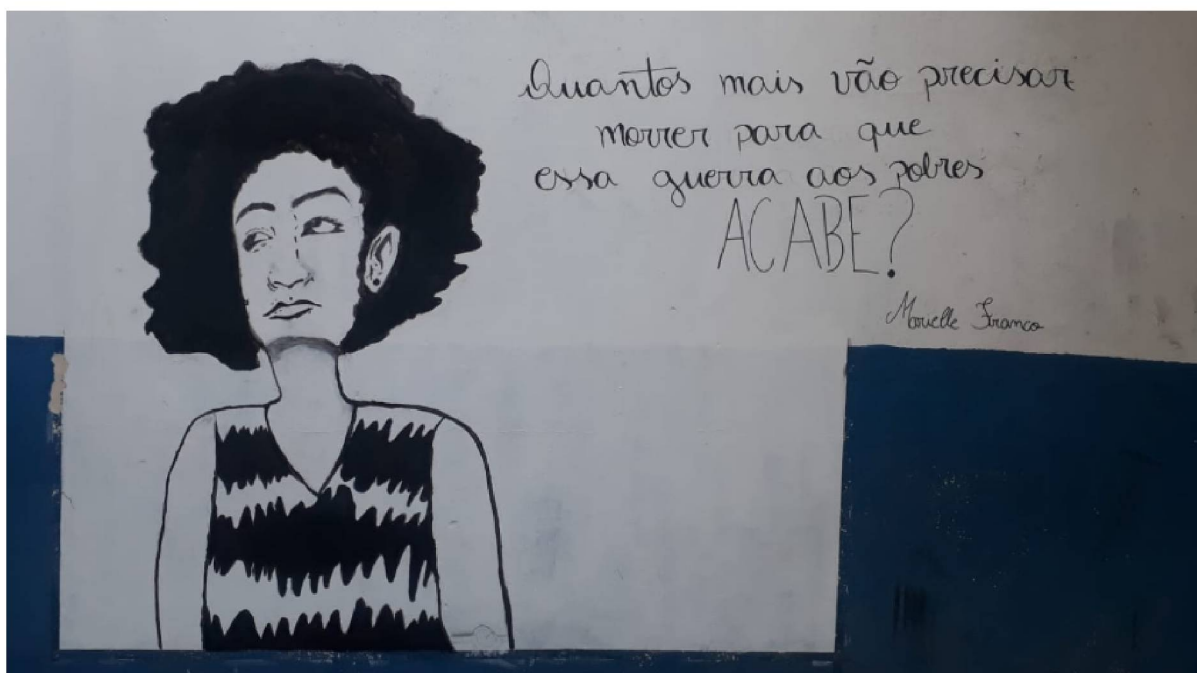 Quantos mais vão precisar
morrer para que
essa guerra aos pobres
ACABE?
Marielle Franco